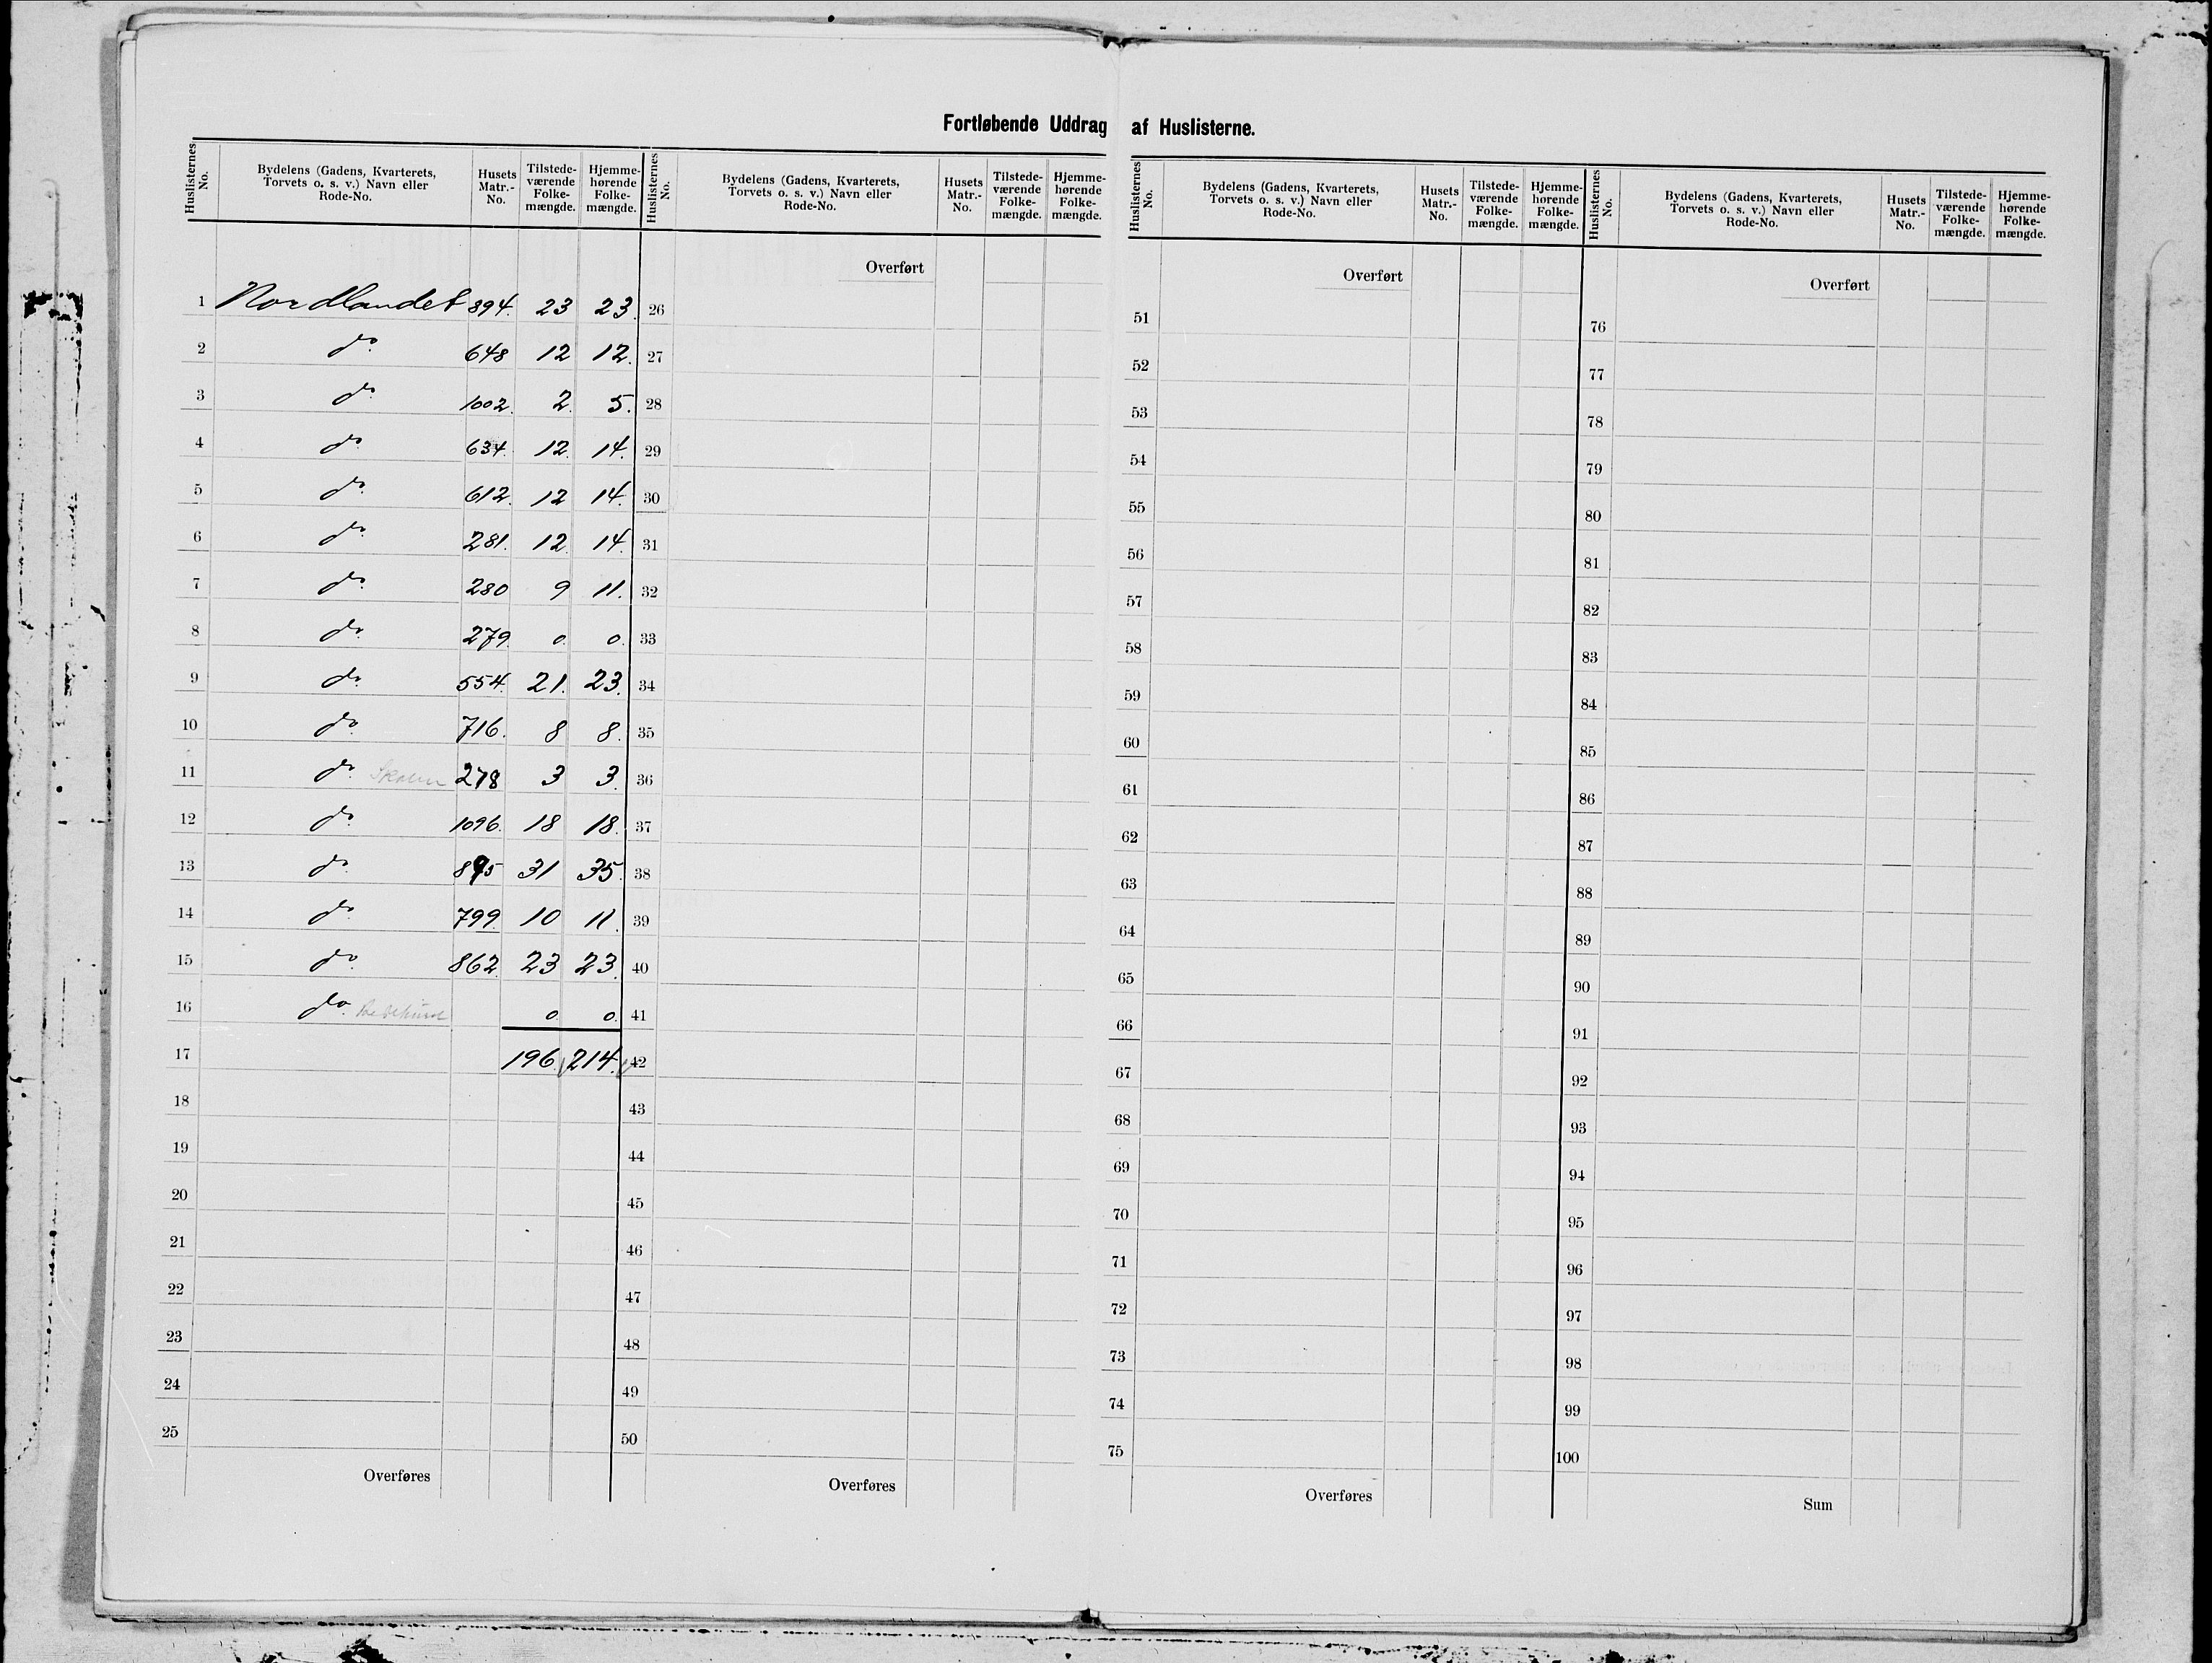 Fortløbende Uddrag af Huslisterne.
Huslisternes No. Bydelens (Gadens, Kvarterets, Torvets o. s. v.) Navn eller Rode-No. Husets Matr.-No. Tilstede-værende Folke-mængde. Hjemme-hørende Folke-mængde.
1 Nordlandet 894. 23 23.
2 do. 648 12 12.
3 do. 1002. 2. 5.
4 do. 634. 12. 14.
5 do. 612. 12 14.
6 do. 281. 12. 14.
7 do. 280 9 11.
8 do. 279. 0. 0.
9 do. 554. 21. 23.
10 do. 716. 8 8.
11 do. Skolen 278 3 3.
12 do. 1096. 18 18.
13 do. 895 31 35.
14 do. 799. 10 11.
15 do. 862. 23 23.
16 do. Bedehuset 0. 0.
17 196. 214.
18
19
20
21
22
23
24
25
Overføres
Huslisternes No. Bydelens (Gadens, Kvarterets, Torvets o. s. v.) Navn eller Rode-No. Husets Matr.-No. Tilstede-værende Folke-mængde. Hjemme-hørende Folke-mængde.
Overført
26
27
28
29
30
31
32
33
34
35
36
37
38
39
40
41
42
43
44
45
46
47
48
49
50
Overføres
Huslisternes No. Bydelens (Gadens, Kvarterets, Torvets o. s. v.) Navn eller Rode-No. Husets Matr.-No. Tilstede-værende Folke-mængde. Hjemme-hørende Folke-mængde.
Overført
51
52
53
54
55
56
57
58
59
60
61
62
63
64
65
66
67
68
69
70
71
72
73
74
75
Overføres
Huslisternes No. Bydelens (Gadens, Kvarterets, Torvets o. s. v.) Navn eller Rode-No. Husets Matr.-No. Tilstede-værende Folke-mængde. Hjemme-hørende Folke-mængde.
Overført
76
77
78
79
80
81
82
83
84
85
86
87
88
89
90
91
92
93
94
95
96
97
98
99
100
Sum